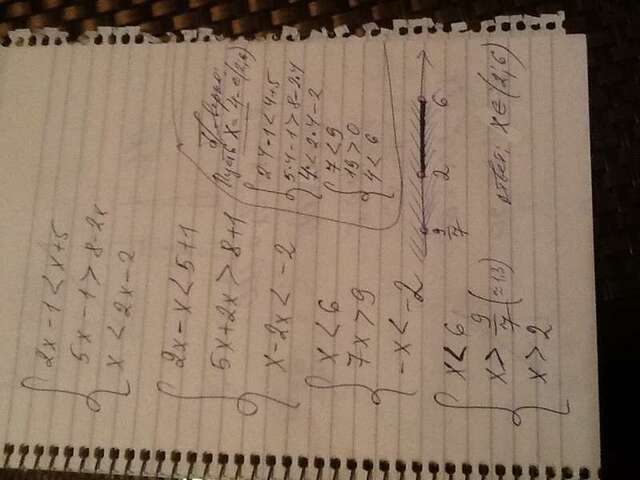 2x-1<x+5
5x-1>8-2x
x<2x-2
2x-x<5+1
5x+2x>8+1
x-2x<-2
x<6
7x>9
-x<-2
x<6
x>9/7(≈1,3)
x>2
Пусть x=4 ∈(2;6)
2·4-1<4+5
5·4-1>8-2·4
4<2·4-2
7<9
19>0
4<6
9/7 2 6
ответ: x∈(2;6)